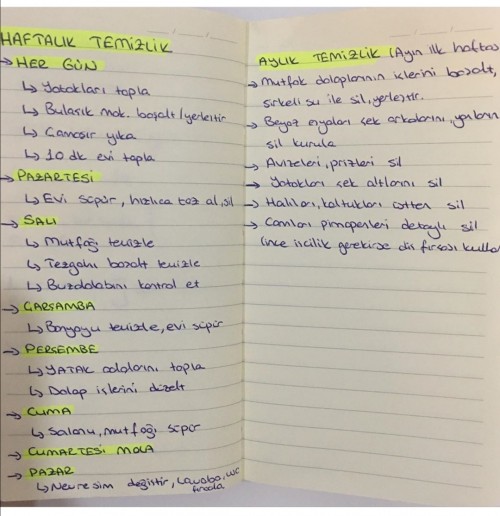 HAFTALIK TEMİZLİK
→ HER GÜN
↳ Yatakları topla
↳ Bulaşık mak. boşalt/yerleştir
↳ Çamaşır yıka
↳ 10 dk evi topla
→ PAZARTESİ
↳ Evi süpür, hızlıca toz al, sil
→ SALI
↳ Mutfağı temizle
↳ Tezgahı boşalt temizle
↳ Buzdolabını kontrol et
→ ÇARŞAMBA
↳ Banyoyu temizle, evi süpür
→ PERŞEMBE
↳ YATAK odalarını topla
↳ Dolap içlerini düzelt
→ CUMA
↳ Salonu, mutfağı süpür
→ CUMARTESİ MOLA
→ PAZAR
↳ Nevresim değiştir, Lavabo, wc
fırçala
AYLIK TEMİZLİK (Ayın ilk haftası
→ Mutfak dolaplarının içlerini boşalt,
sirkeli su ile sil, yerleştir.
→ Beyaz eşyaları çek arkalarını, yanlarını
sil kurula
→ Avizeleri, prizleri sil
→ Yatakları çek altlarını sil
→ Halıları, koltukları sil
→ Camları pimapenleri detaylı sil
(ince işçilik gerekirse diş fırçası kullan